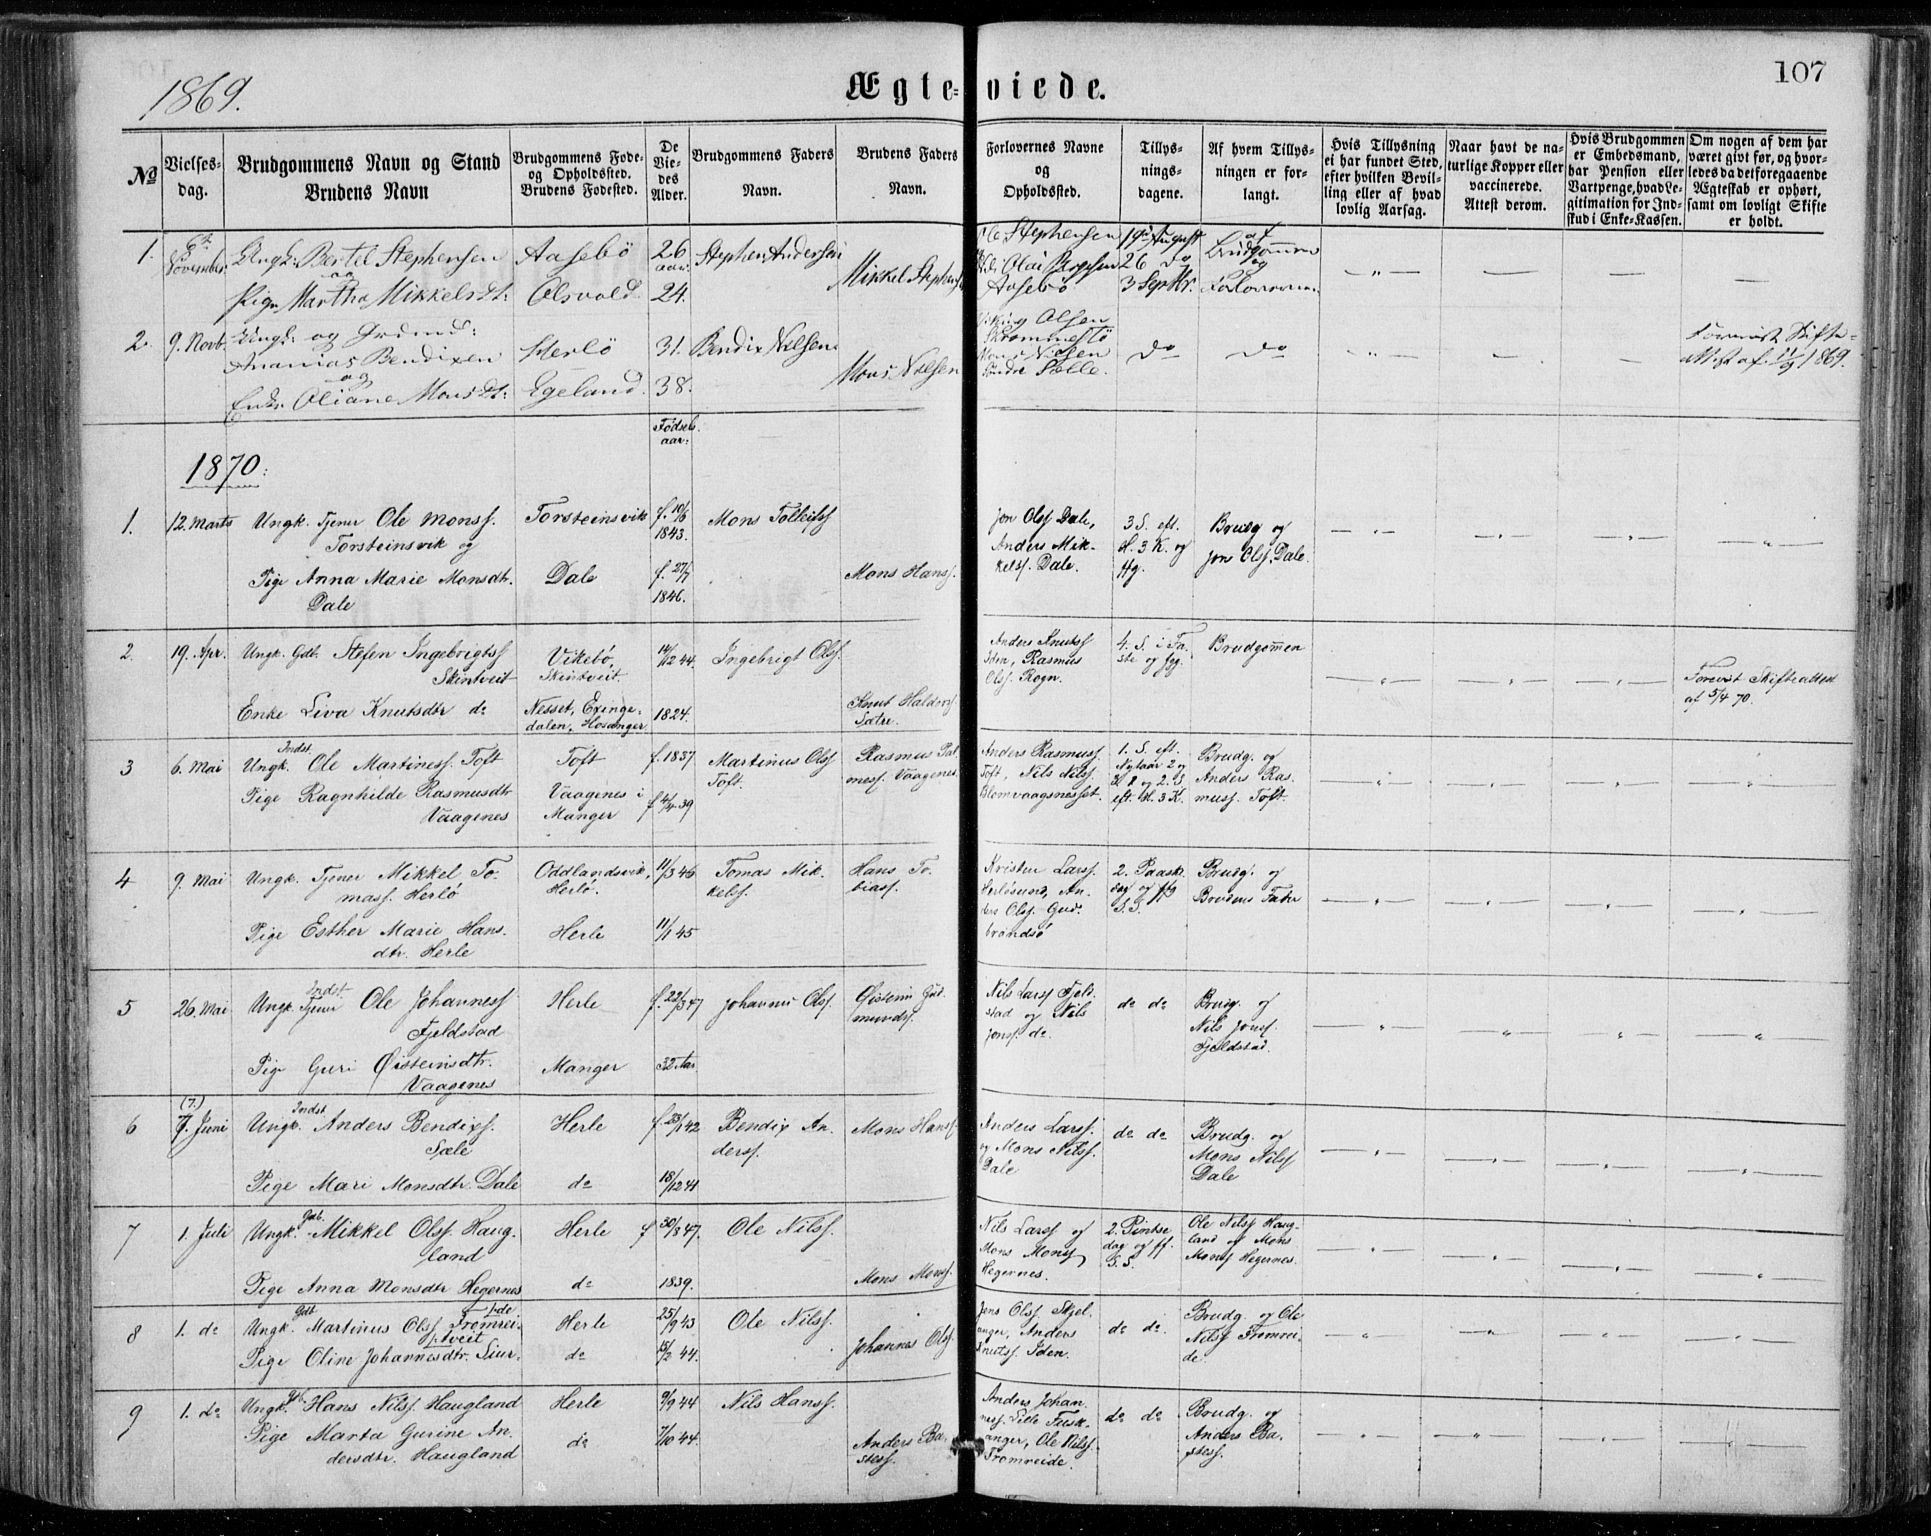 1869.
Ægte-viede.
107
No
Vielses-
dag.
Brudgommens Navn og Stand
Brudens Navn
Brudgommens Føde-
og Opholdssted.
Brudens Fødested.
De
Vie-
des
Alder.
Brudgommens Faders
Navn.
Brudens Faders
Navn.
Forlovernes Navne
og
Opholdssted.
Tillys-
nings-
dagene.
Af hvem Tillys-
ningen er for-
langt.
Hvis Tillysning
ei har fundet Sted,
efter hvilken Bevil-
ling eller af hvad
lovlig Aarsag.
Naar havt de na-
turlige Kopper eller
vaccinerede.
Attest derom.
Hvis Brudgommen
er Embedsmand,
har Pension eller
Vartpenge, hvad Le-
gitimation for Ind-
skud i Enke-Kassen.
Om nogen af dem har
været givt før, og hvor-
ledes da det foregaaende
Ægteskab er ophørt,
samt om lovligt Skifte
er holdt.
1.
November
Ungk. Bertel Stephensen
og
Pige Martha Mikkelsdt:
Aasebö
Olsvold
26
aar
24.
Stephen Andersen
Mikkel Stephens
Ole Stephensen
Aasebö
19de August
26 do
3 Septbr.
af
Brudgommen
og
Forloverne
2.
9. Novb.
Ungk. og
Ananias Bendixen
og
Enke Oliane Mons Dt:
Herlö
Egeland
31.
38.
Bendix Nilsen
Mons Nilsen
Olsen
Nilsen
do
do
Forevist Skifte-
attest af 11/9 1869.
Fødsels
aar:
1870:
1.
12. Marts
Ungk. Tjener Ole Monss.
Torsteinsvik og
Pige Anna Marie Monsdtr.
Dale
Torsteinsvik
Dale
f. 10/6
1843.
f. 27/7
1846.
Mons Tolleifss
Mons Hanss.
Jon Olss Dale,
Anders Mik-
kelss. Dale.
3 S. eft.
H. 3 K. og
ffg.
Brudg og
Jon Olss. Dale.
2
19. Apr.
Ungk. Gdb. Stefen Ingebrigtss
Skintveit
Enke Siva Knutsdtr do
Vikebö,
Skintveit.
Nesset, Exinge-
dalen, Hosanger
14/12 44.
1824.
Ingebrigt Olss.
Knut Haldorss.
Sætre.
Anders Knutss
Iden, Rasmus
Olss. Rogn.
4. S. i Fa-
ste og ffg.
Brudgommen
Forevist Skifteattest
af 5/4 70.
3
6. Mai
Indst.
Ungk. Ole Martiness. Toft
Pige Ragnhilde Rasmusdtr
Vaagenes
Toft
Vaagenes i
Manger
f. 1837
f 4/4 39
Martinus Olss
Toft.
Rasmus Pal-
mess. Vaagenes.
Anders Rasmuss.
Toft, Nils Nilss.
Blomvaagsnesset.
1. S. eft.
Nytaar 2 S
H 3 K.
Brudg. og
Anders Ras-
muss. Toft.
4
9. Mai
Ungk. Tjener Mikkel To-
mass. Herlö
Pige Esther Marie Hans-
dtr. Herle
Oddlandsvik,
Herlö.
Herle
11/3 46
11/1 45
Tomas Mik-
kelss.
Hans To-
biass.
Kristen Larss.
Herlösund, An-
ders Olss. Gud-
brandsö
2. Paaske-
dag og ff
S.S.
Brudg. og
Brudens Fader
5
26. Mai
Indst.
Ungk. Tjener Ole Johanness
Fjeldstad
Pige Guri Øisteinsdtr.
Vaagenes
Herle
Manger
f. 22/3 47
32 Aar
Johannes Olss.
Øistein Gud-
mundss.
Nils Larss Fjeld-
stad og Nils
Jonss. do
do do
Brudg. og
Nils Jonss.
Fjeldstad.
6
(7.)
7. Juni
Indst.
Ungk. Anders Bendixs.
Sæle
Pige Mari Monsdtr. Dale
Herle
do
f. 23/1 42
18/12 41
Bendix An-
derss.
Mons Hanss.
Anders Larss.
og Mons Nilss.
Dale
do do
Brudg. og
Mons Nilss
Dale
7
1. Juli
Gdb.
Ungk. Mikkel Olss. Haug-
land
Pige Anna Monsdtr Hegernes
Herle
do
f 30/3 47.
1839.
Ole Nilss.
Mons Monss.
Nils Larss og
Mons Monss
Hegernes.
2. Pintse-
dag og ff.
S.S.
Ole Nilss Haug-
land og Mons
Monss Hegernes.
8
1. do
Gdb.
Ungk. Martinus Olss Fromrei-
de
Pige Oline Johannesdtr. Siur-
tveit
Herle
do
25/9 43
15/2 44.
Ole Nilss.
Johannes Olss
Jens Olss. Skjel-
anger, Anders
Knutss. Iden.
do do.
Brudg. og Ole
Nilss Fromrei-
de.
9
1. do
Gdb.
Ungk. Hans Nilss. Haugland
Pige Marta Gurine An-
dersdtr. Haugland
Herle
do
9/9 44
7/10 44.
Nils Hanss.
Anders Ba-
stess.
Anders Johan-
ness. Lille Fusk-
anger, Ole Nilss.
Fromreide.
do do
Brudg. og
Anders Ba-
stess.